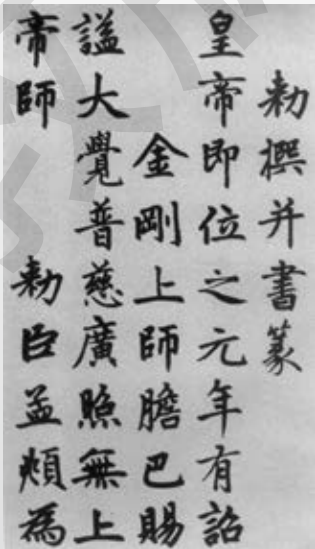 勅撰并書篆
皇帝即位之元年有詔
金剛上師膽巴賜
謚大覺普慈廣照無上
帝師 勅臣孟頫為